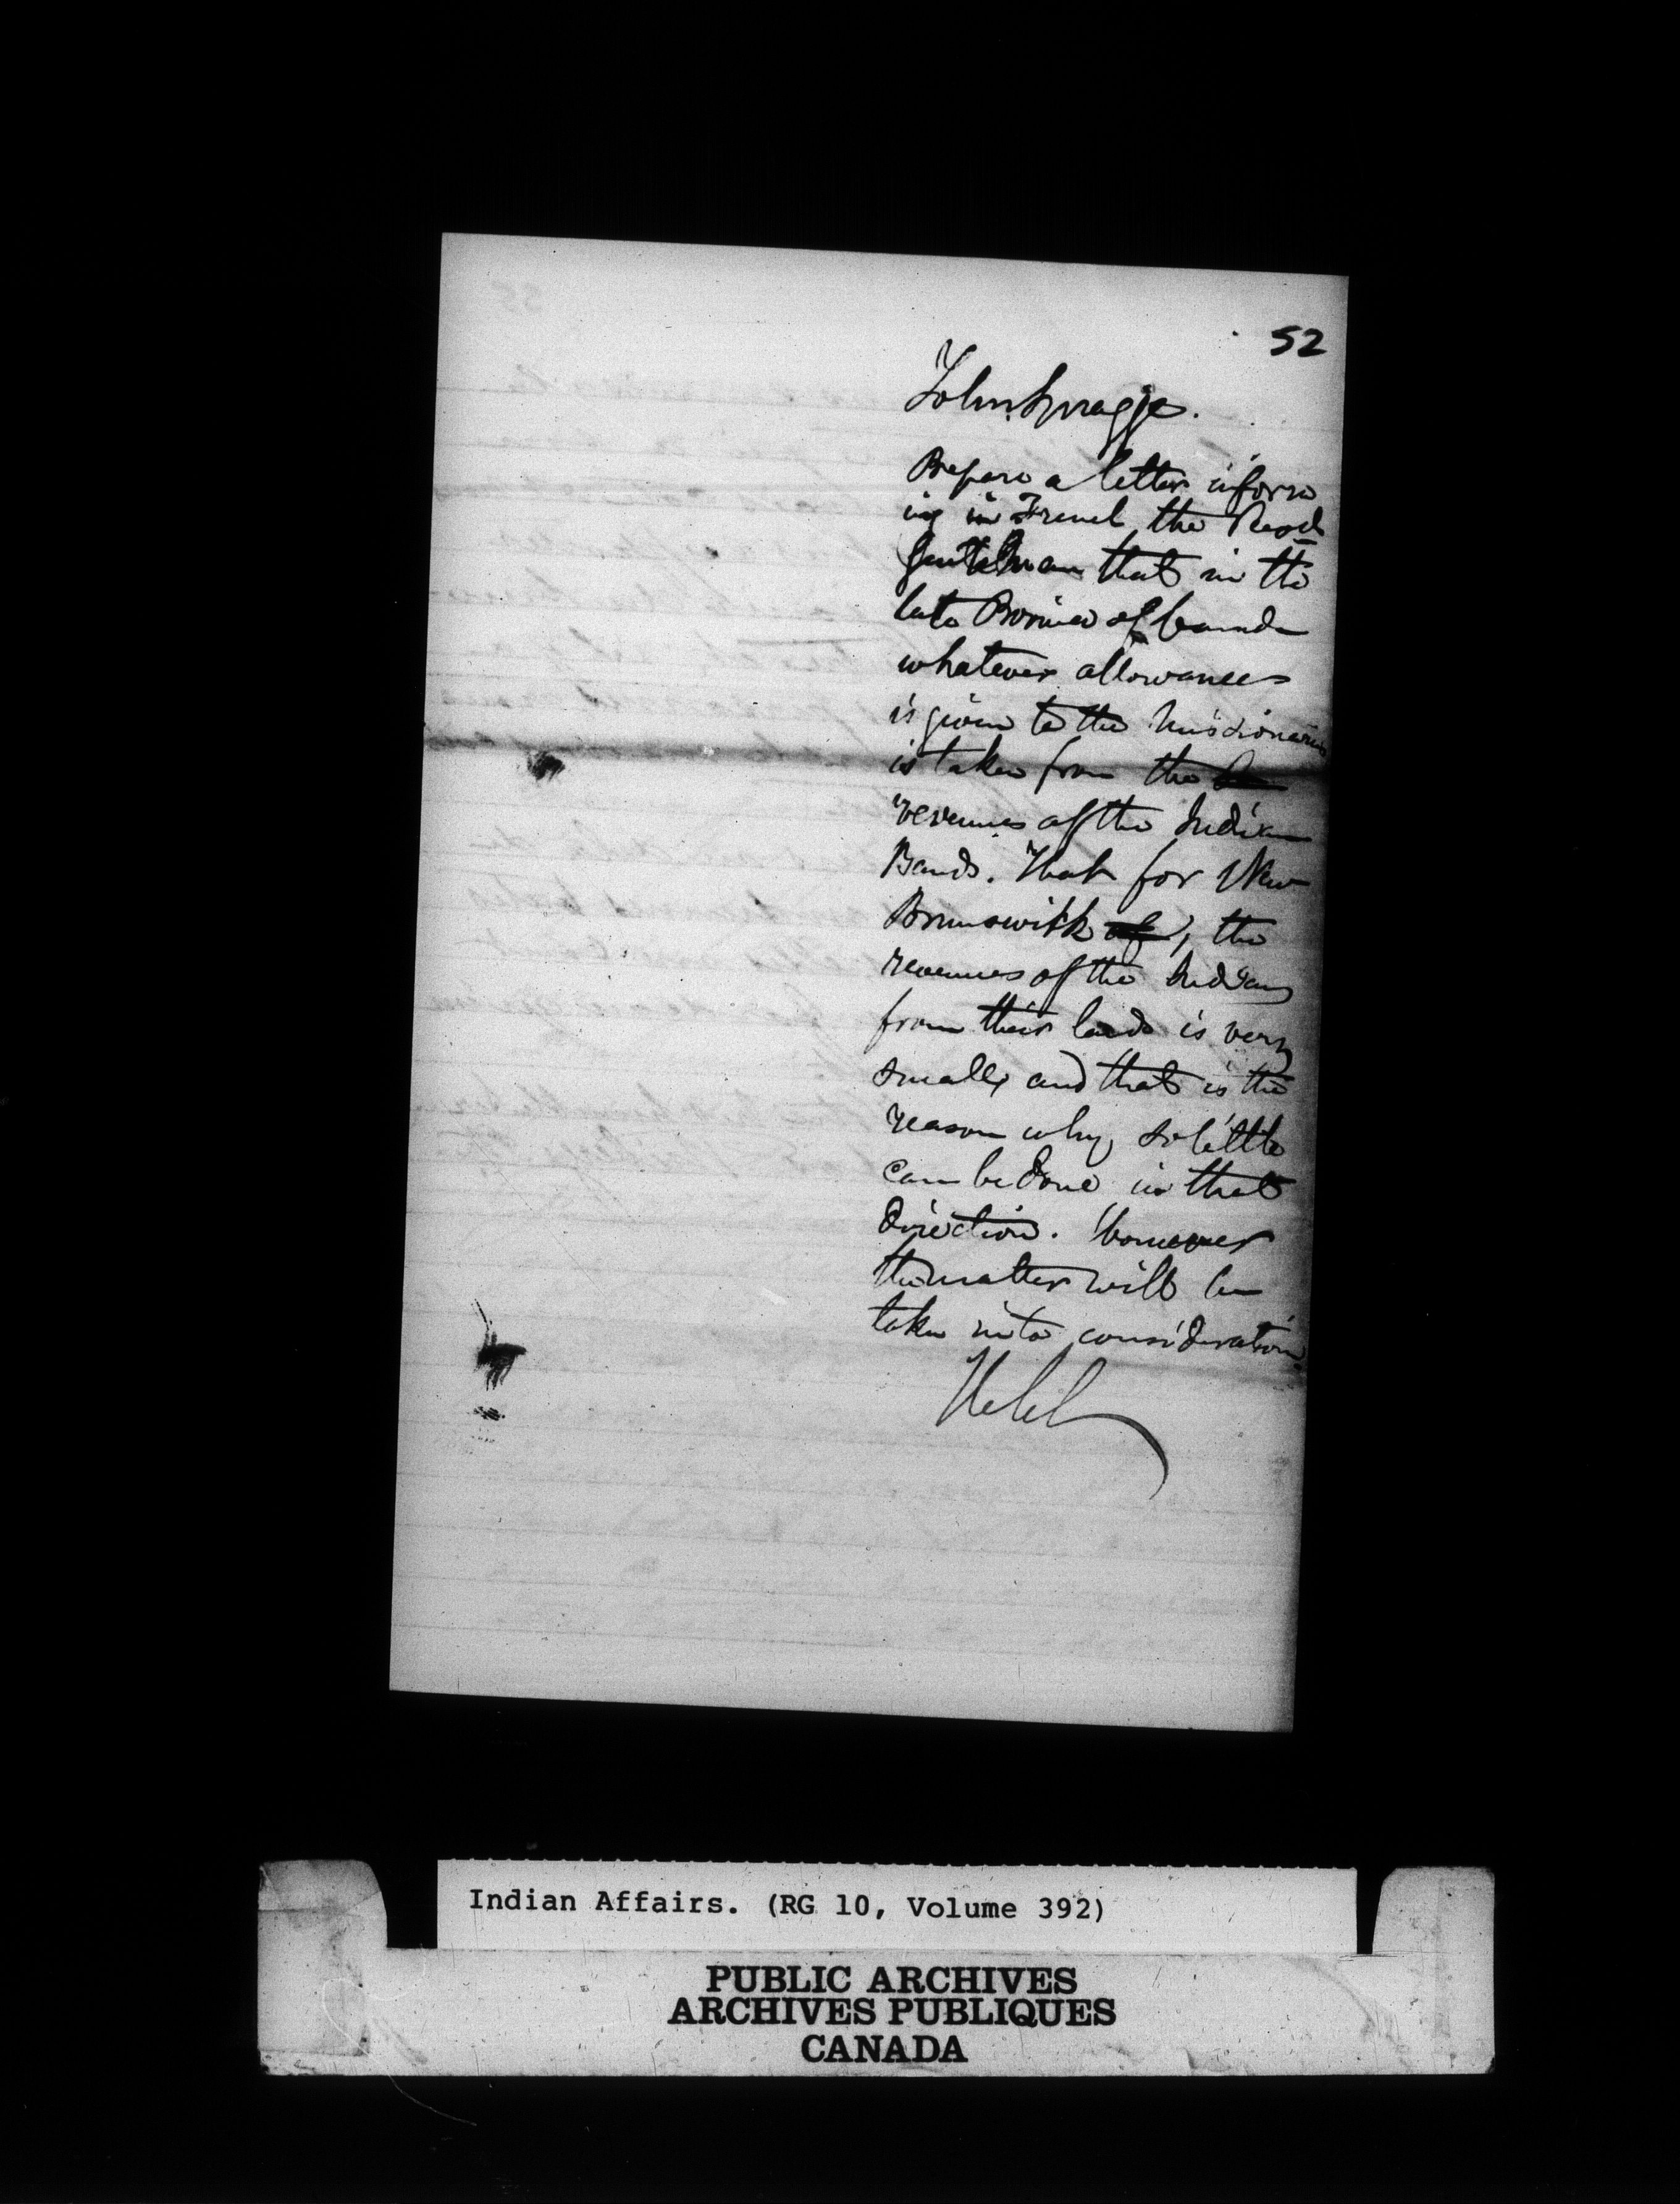 52
John Spragge.
Prepare a letter inform
ing in French the Revd
Gentleman that in the
late Province of Canada
whatever allowances
is given to the Missionaries
is taken from the
revenues of the Indian
Bands. That for New
Brunswick of, the
revenues of the Indians
from their lands is very
small, and that is the
reason why so little
can be done in that
direction. However
the matter will be
taken into consideration.
Indian Affairs. (RG 10, Volume 392)
PUBLIC ARCHIVES
ARCHIVES PUBLIQUES
CANADA